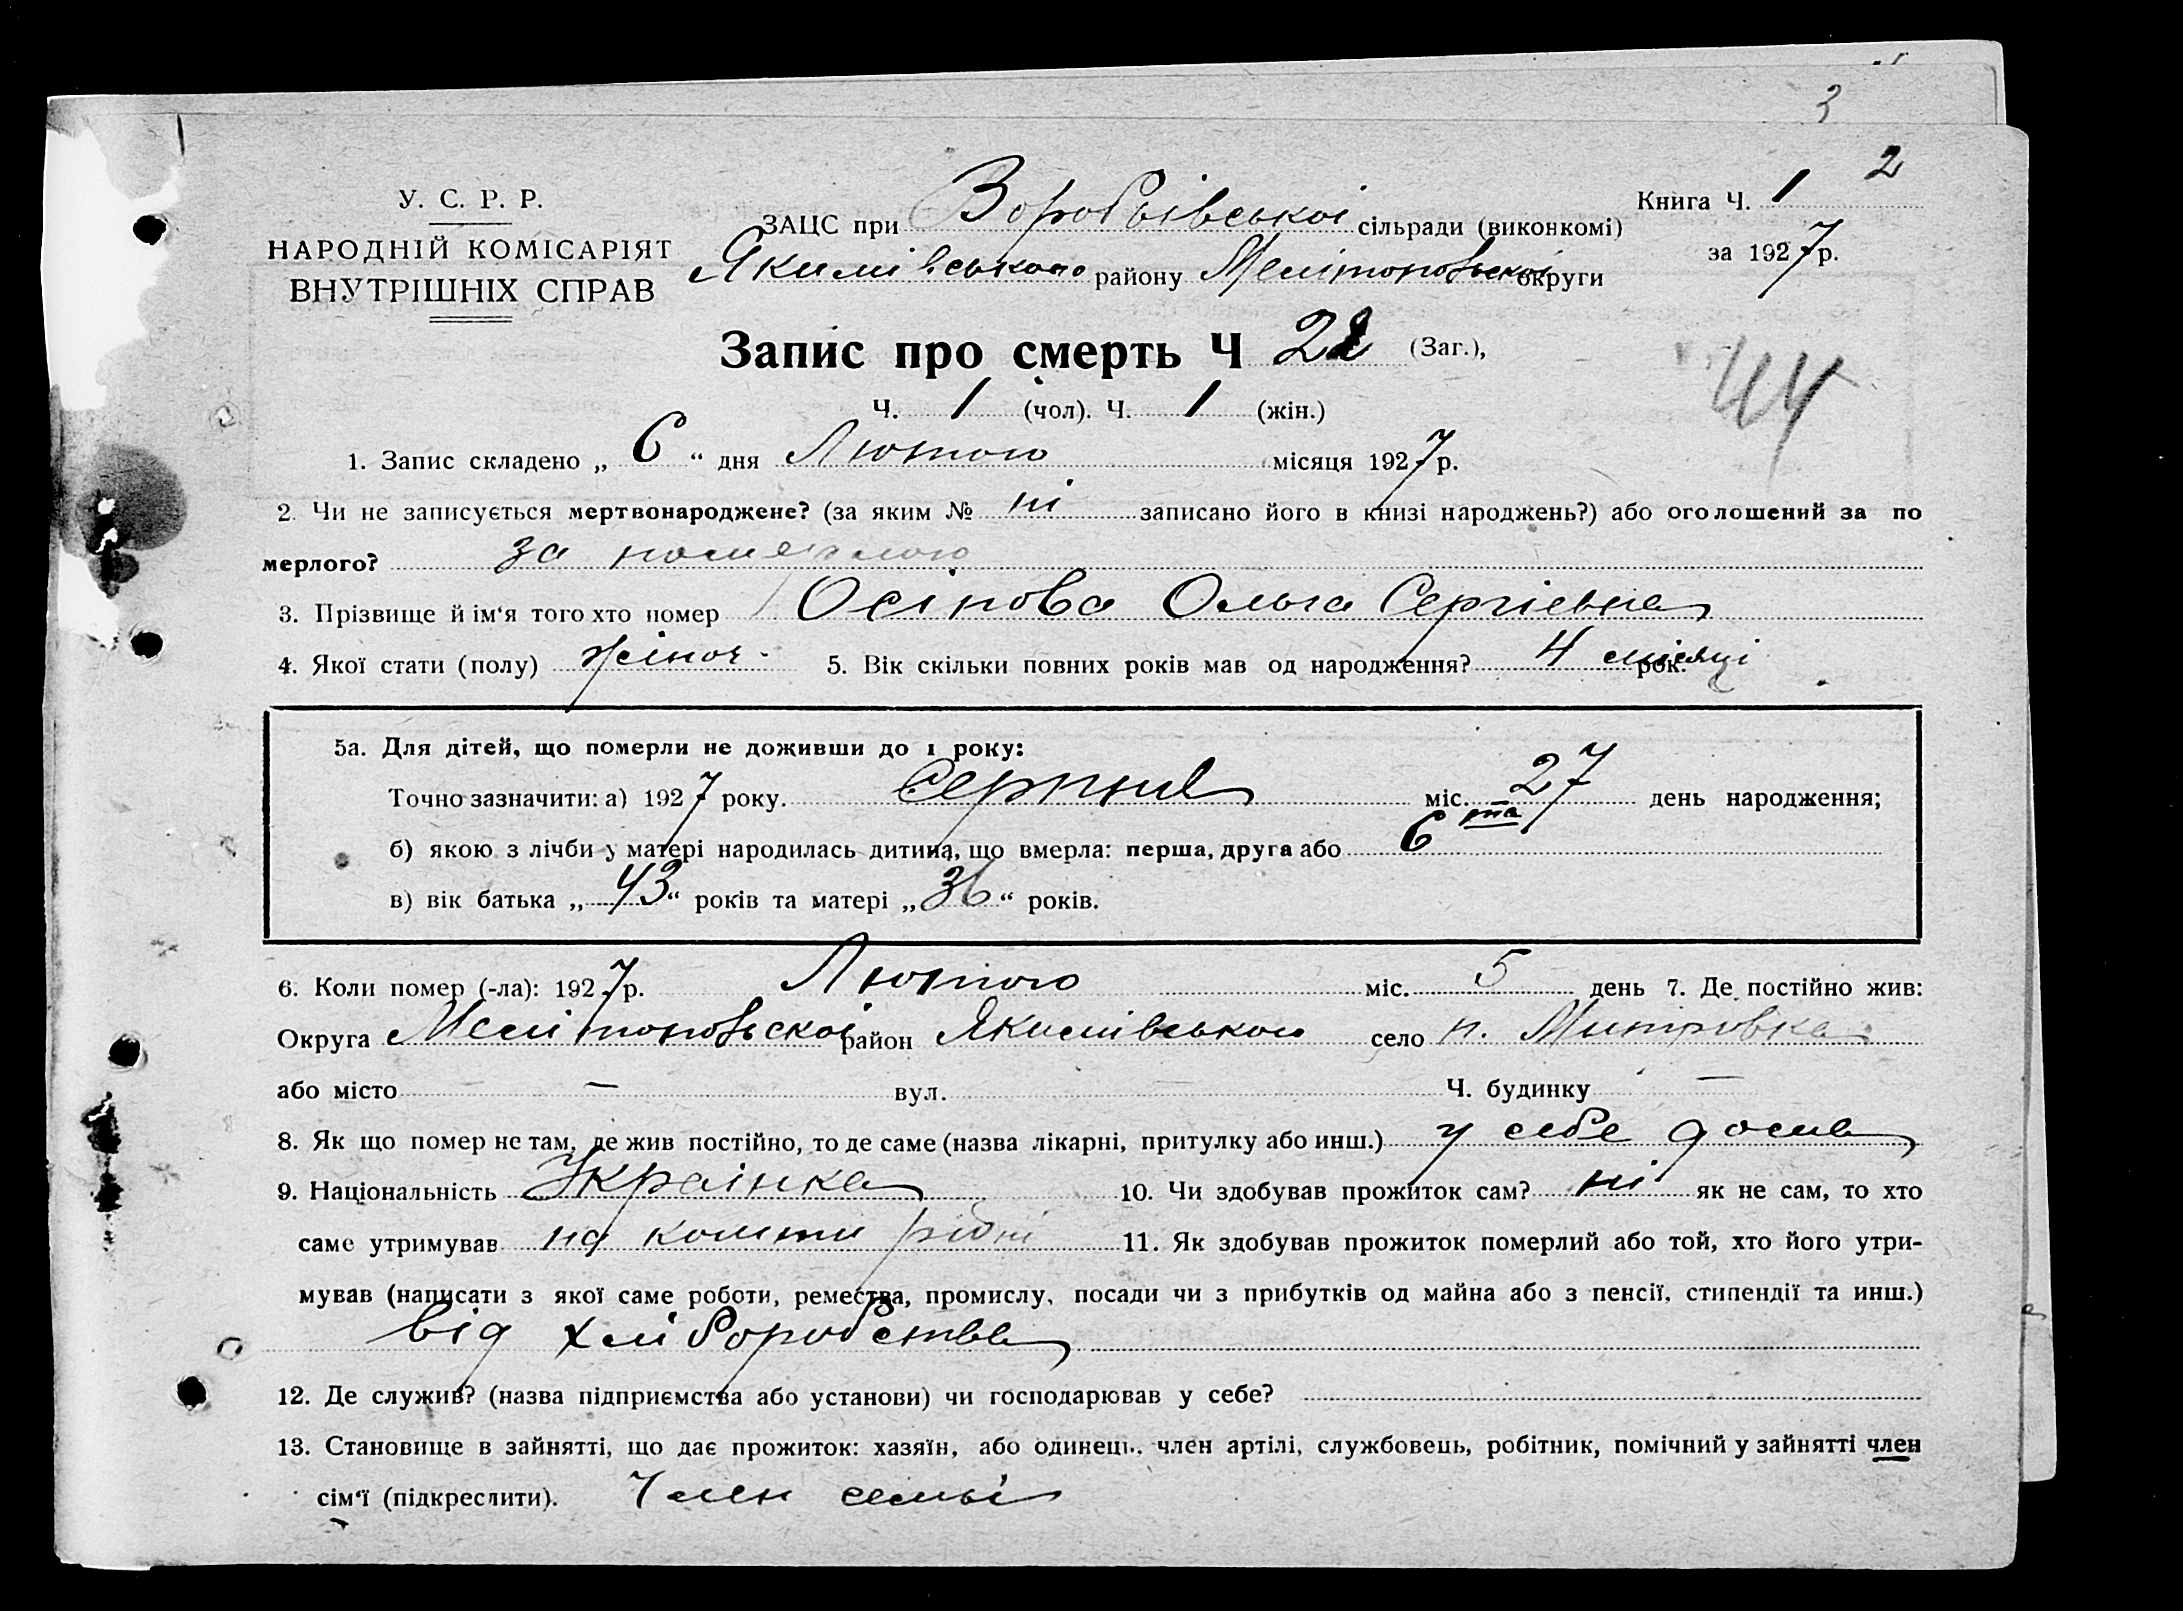 3
2
У. С. Р. Р.
НАРОДНІЙ КОМІСАРІЯТ
ВНУТРІШНІХ СПРАВ
ЗАЦС при Воробьівської сільради (виконкомі)
Якимівського району Мелітопольскої округи
Книга Ч. 1
за 1927 р.
Запис про смерть Ч 2 (Заг.),
44
Ч. 1 (чол). Ч. 1 (жін.)
1. Запис складено „ 6 “ дня Лютого місяця 1927 р.
2. Чи не записується мертвонароджене? (за яким № ні записано його в книзі народжень?) або оголошений за по
мерлого? за померлого
3. Прізвище й ім‘я того хто помер Осіпова Ольга Сергієвна
4. Якої стати (полу) жіноч. 5. Вік скільки повних років мав од народження? 4 місяці рок.
5а. Для дітей, що померли не доживши до 1 року:
Точно зазначити: а) 1927 року. Серпня міс. 27 день народження;
б) якою з лічби у матері народилась дитина, що вмерла: перша, друга або 6 та
в) вік батька „ 43 “ років та матері „ 36 “ років.
6. Коли помер (-ла): 1927 р. Лютого міс. 5 день 7. Де постійно жив:
Округа Мелітопольскої район Якимівського село п. Митровка
або місто — вул. Ч. будинку —
8. Як що помер не там, де жив постійно, то де саме (назва лікарні, притулку або инш.) у себе дома
9. Національність Украінка 10. Чи здобував прожиток сам? ні як не сам, то хто
саме утримував на кошти рідні 11. Як здобував прожиток померлий або той, хто його утри-
мував (написати з якої саме роботи, ремества, промислу, посади чи з прибутків од майна або з пенсії, стипендії та инш.)
від хліборобства
12. Де служив? (назва підприємства або установи) чи господарював у себе?
13. Становище в зайнятті, що дає прожиток: хазяїн, або одинець, член артілі, службовець, робітник, помічний у зайнятті член
сім‘ї (підкреслити). Член семьі